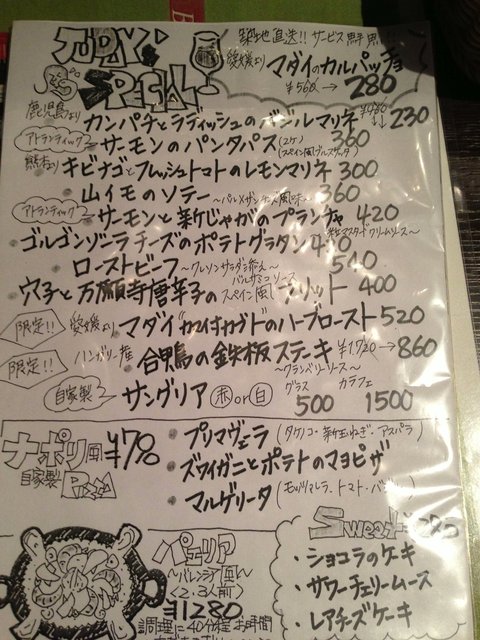 TODAY'S SPECIAL
築地直送!! サービス鮮魚!!!
愛媛より マダイのカルパッチョ
¥560 → 280
鹿児島より カンパチとラディッシュのバジルマリネ ¥480 → 230
アトランティック サーモンのパンタパス (2ケ) (スペイン風ブルスケッタ) 360
熊本より キビナゴとフレッシュトマトのレモンマリネ 300
山イモのソテー ~パルメザンチーズ風味~ 360
アトランティック サーモンと新じゃがのプランチャ 420
~粒マスタードクリームソース~
ゴルゴンゾーラチーズのポテトグラタン
ローストビーフ ~クレソンサラダを添え~ バルサミコソース
穴子と万願寺唐辛子のスペイン風フリット 400
限定!! 愛媛より マダイカマのハーブロースト 520
限定!! ハンガリー産 合鴨の鉄板ステーキ ¥1720→860
~クランベリーソース~
自家製 サングリア 赤 or 白 グラス 500 カラフェ 1500
ナポリ風 自家製 Pizza ¥780
・プリマヴェーラ (タケノコ・新玉ねぎ・アスパラ)
・ズワイガニとポテトのマヨピザ
・マルゲリータ (モッツァレラ、トマト・バジル)
パエリア
~バレンシア風~
<2.3人前>
¥1280
調理に40分程お時間
Sweets
・ショコラのケーキ
・サワーチェリームース
・レアチーズケーキ